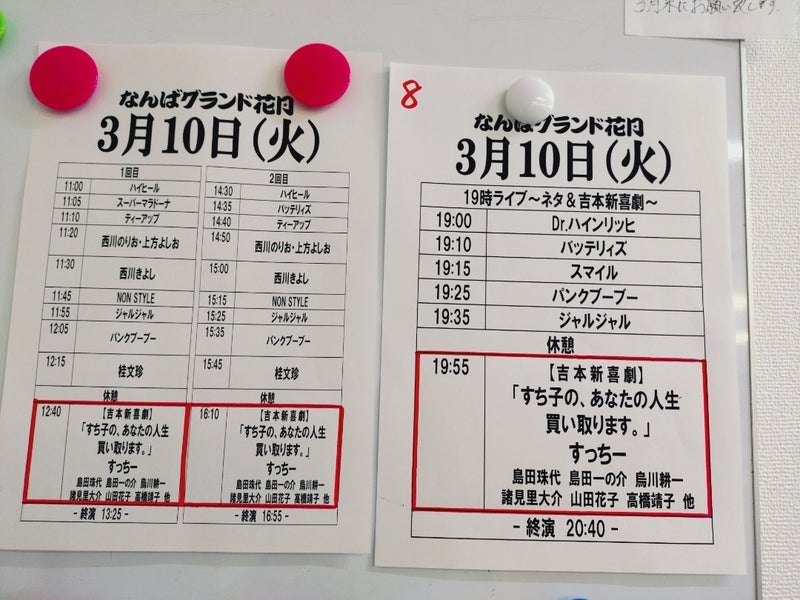 3月末にお願い致します.
なんばグランド花月
3月10日(火)
1回目
11:00 ハイヒール
11:05 スーパーマラドーナ
11:10 ティーアップ
11:20 西川のりお・上方よしお
11:30 西川きよし
11:45 NON STYLE
11:55 ジャルジャル
12:05 パンクブーブー
12:15 桂文珍
休憩
12:40 【吉本新喜劇】
「すち子の、あなたの人生
買い取ります。」
すっちー
島田珠代 島田一の介 烏川耕一
諸見里大介 山田花子 高橋靖子 他
- 終演 13:25 -
2回目
14:30 ハイヒール
14:35 バッテリィズ
14:40 ティーアップ
14:50 西川のりお・上方よしお
15:00 西川きよし
15:15 NON STYLE
15:25 ジャルジャル
15:35 パンクブーブー
15:45 桂文珍
休憩
16:10 【吉本新喜劇】
「すち子の、あなたの人生
買い取ります。」
すっちー
島田珠代 島田一の介 烏川耕一
諸見里大介 山田花子 高橋靖子 他
- 終演 16:55 -
8
なんばグランド花月
3月10日(火)
19時ライブ〜ネタ&吉本新喜劇〜
19:00 Dr.ハインリッヒ
19:10 バッテリィズ
19:15 スマイル
19:25 パンクブーブー
19:35 ジャルジャル
休憩
19:55 【吉本新喜劇】
「すち子の、あなたの人生
買い取ります。」
すっちー
島田珠代 島田一の介 烏川耕一
諸見里大介 山田花子 高橋靖子 他
- 終演 20:40 -